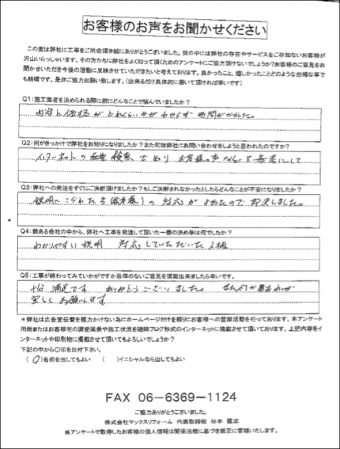 お客様のお声をお聞かせください
この度は弊社に工事をご用命頂き誠にありがとうございました。世の中には弊社の存在やサービスをご存知ないお客様が
沢山いらっしゃいます。その方たちに弊社をよく知って頂くためのアンケートにご協力頂けないでしょうか?お客様のご意見をお
聞かせいただき今後の活動に反映させていただきたいと考えております。良かったこと、嬉しかったことどのような些細な事で
も結構です。是非ご協力お願い致します。(出来るだけ具体的に書いて頂ければ幸いです)
Q1:施工業者を決められる際に前にどんなことで悩んでいましたか?
内容と価格が よくわからず 時間がかかった。
Q2:何がきっかけで弊社をお知りになりましたか?また何故弊社にお問い合わせをしようと思われたのですか?
インターネットの 検索でお客様の声なども参考にして
Q3:弊社への発注をすぐにご決断頂けましたか?もしご決断されなかったとしたらどんなことが不安になりましたか?
説明に こられた 対応が よかったので 即決しました。
Q4:数ある会社の中から、弊社へ工事を発注して頂いた一番の決め手は何でしたか?
わかりやすい説明 対応していただいた人柄
Q5:工事が終わってみていかがですか忌憚のないご意見を頂戴出来ましたら幸いです。
十分 満足です ありがとうございました。
宜しくお願いします
*弊社は広告宣伝費を極力かけない為にホームページだけを頼りにお客様への営業活動を行っております。本アンケート
用紙またはお客様宅の調査風景や施工状況を随時ブログ形式のインターネットに掲載させて頂いております。上記内容をイ
ンターネットや印刷物に掲載させて頂いてもよろしいでしょうか?
下記の中から〇印をお付下さい。
(○)名前を出してもよい ( )イニシャルなら出してもよい
FAX 06-6369-1124
ご協力ありがとうございました。
株式会社マックスリフォーム 代表取締役 杉本
当アンケートで取得したお客様の個人情報は関係法令に基づき厳正に管理いたします。